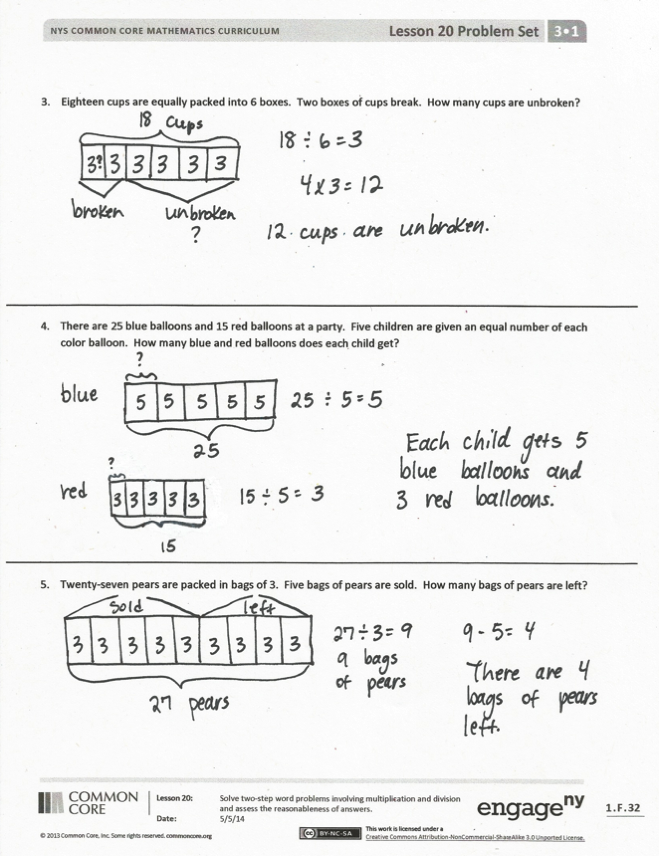 NYS COMMON CORE MATHEMATICS CURRICULUM
Lesson 20 Problem Set
3•1
3. Eighteen cups are equally packed into 6 boxes. Two boxes of cups break. How many cups are unbroken?
18 cups
3? 3 3 3 3 3
broken
unbroken
?
18 ÷ 6 = 3
4 x 3 = 12
12 cups are unbroken.
4. There are 25 blue balloons and 15 red balloons at a party. Five children are given an equal number of each
color balloon. How many blue and red balloons does each child get?
?
blue
5 5 5 5 5
25 ÷ 5 = 5
25
?
red
3 3 3 3 3
15 ÷ 5 = 3
15
Each child gets 5
blue balloons and
3 red balloons.
5. Twenty-seven pears are packed in bags of 3. Five bags of pears are sold. How many bags of pears are left?
sold
left
3 3 3 3 3 3 3 3 3
27 pears
27 ÷ 3 = 9
9 bags
of pears
9 - 5 = 4
There are 4
bags of pears
left.
COMMON
CORE
Lesson 20:
Date:
Solve two-step word problems involving multiplication and division
and assess the reasonableness of answers.
5/5/14
engage ny
1.F.32
© 2013 Common Core, Inc. Some rights reserved. commoncore.org
cc BY-NC-SA
This work is licensed under a
Creative Commons Attribution-NonCommercial-ShareAlike 3.0 Unported License.